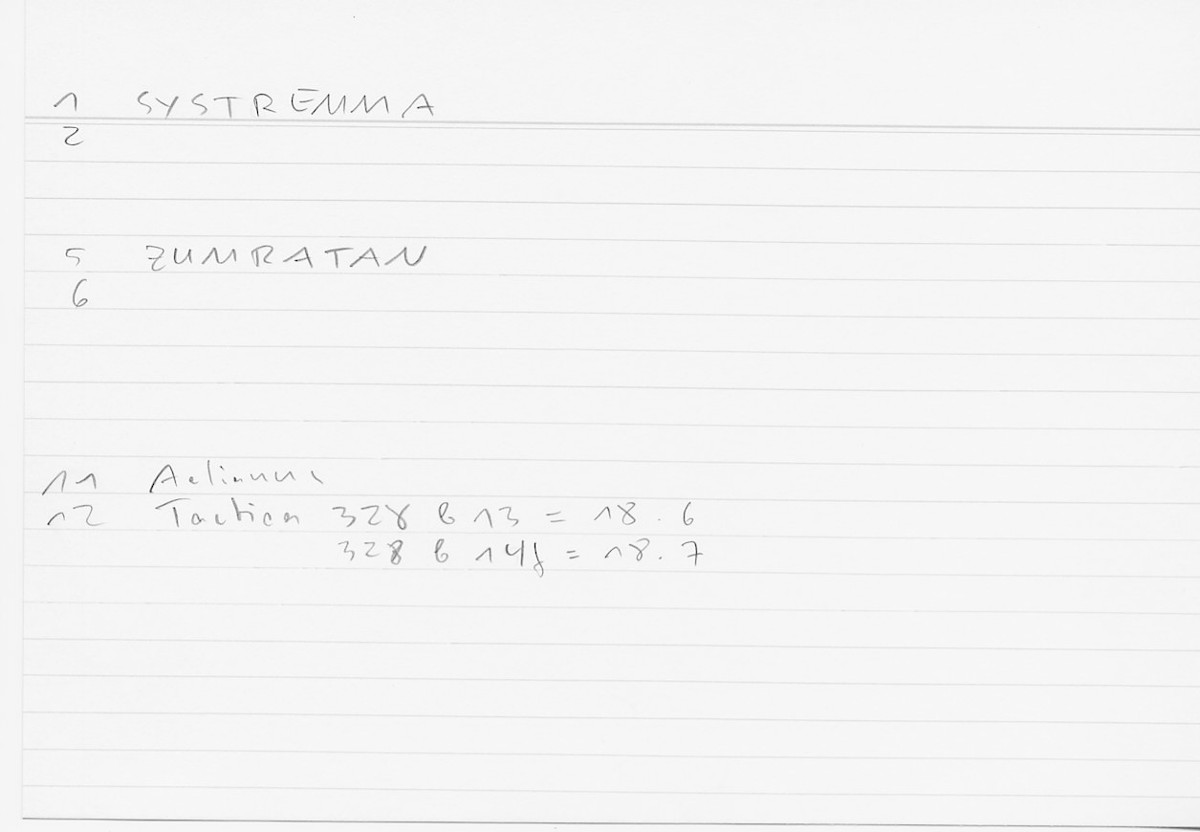 1 SYSTREMMA
2
5 ZUMRATAN
6
11 Aelianus
12 Tactica 328 b 13 = 18.6
328 b 14f = 18.7